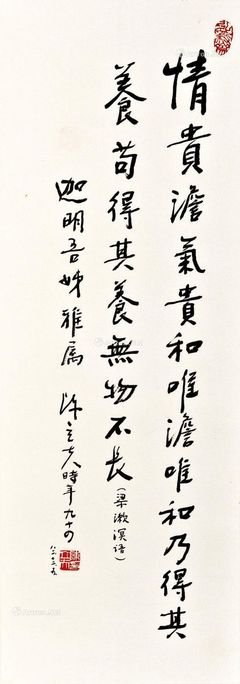 情貴澹氣貴和唯澹唯和乃得其
養苟得其養無物不長(梁漱溟語)
迦明吾姊雅屬 陳立夫時年九十四